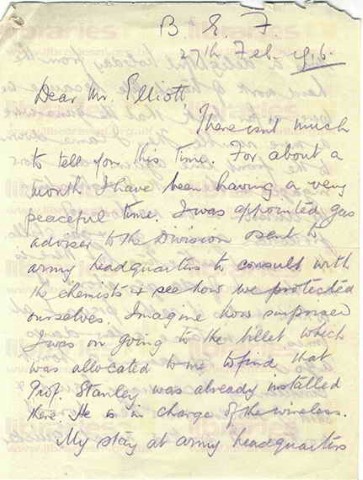 B. E. F
27th Feb. 1916.
Dear Mr. Elliott,
There isn't much
to tell you this time. For about a
month I have been having a very
peaceful time. I was appointed gas
adviser to the Division & sent to
army headquarters to consult with
the chemists & see how we protected
ourselves. Imagine how surprised
I was on going to the billet which
was allocated to me to find that
Prof. Stanley was already installed
there. He is in charge of the wireless.
My stay at army headquarters